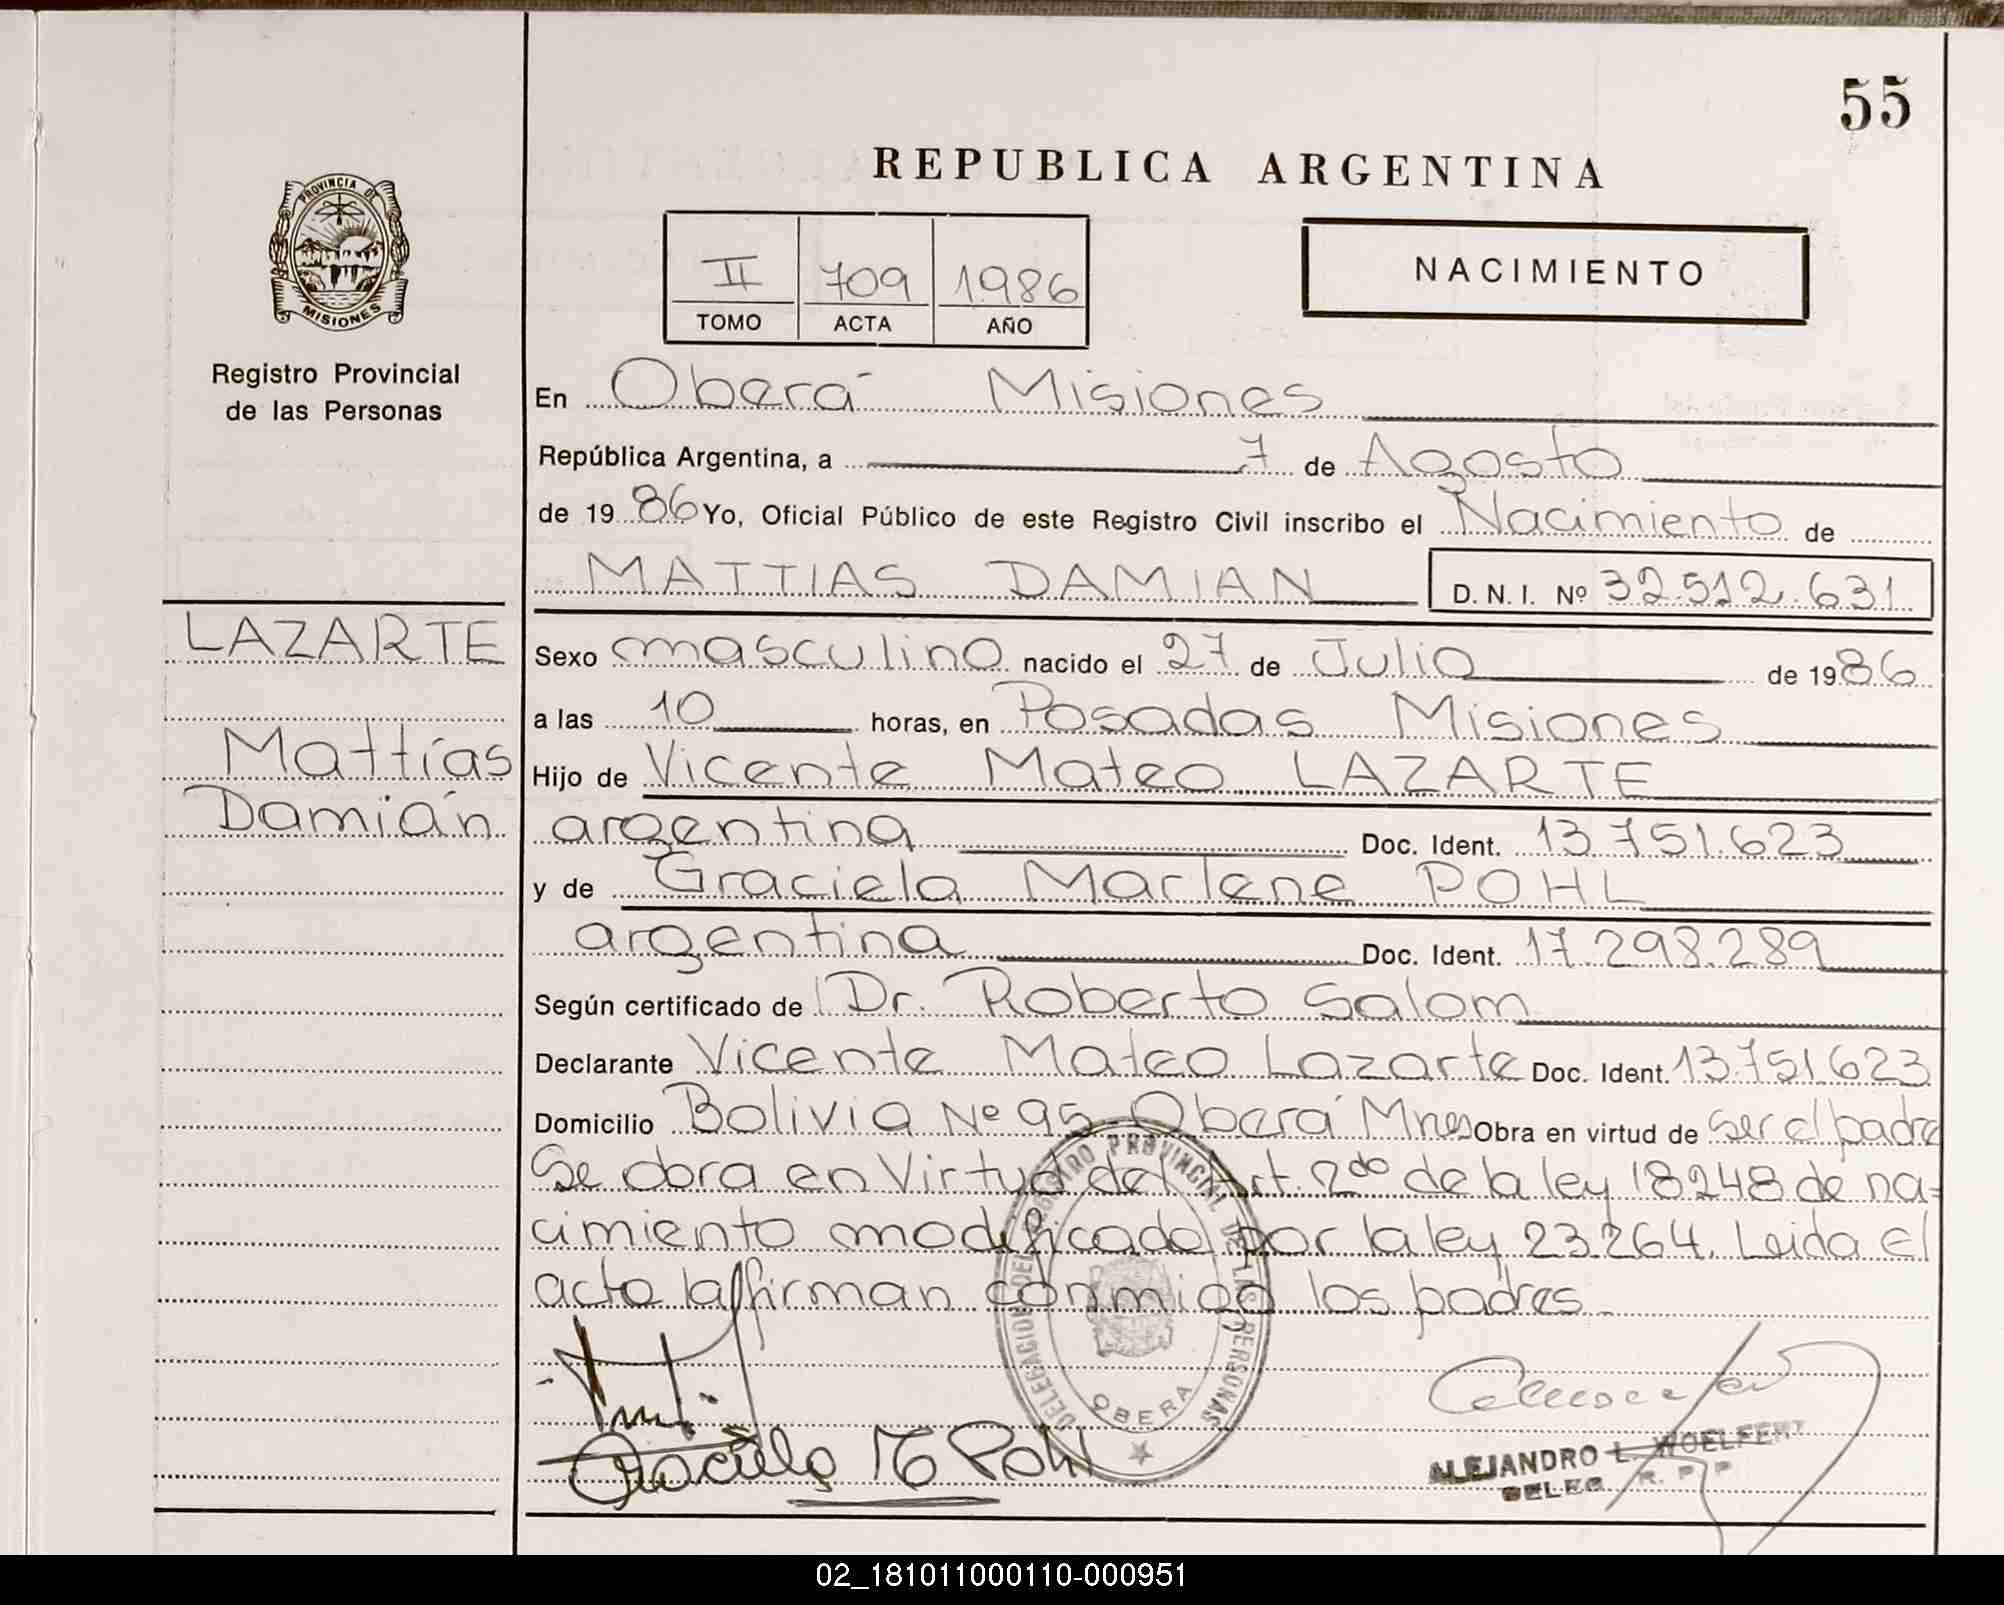 55
REPUBLICA ARGENTINA
PROVINCIA DE
MISIONES
Registro Provincial
de las Personas
II 709 1986
TOMO ACTA AÑO
NACIMIENTO
En Oberá Misiones
República Argentina, a 7 de Agosto
de 1986 Yo, Oficial Público de este Registro Civil inscribo el Nacimiento de
MATTIAS DAMIAN D. N. I. Nº 32.512.631
LAZARTE
Mattías
Damián
Sexo masculino nacido el 27 de Julio de 1986
a las 10 horas, en Posadas Misiones
Hijo de Vicente Mateo LAZARTE
argentina Doc. Ident. 13.751.623
y de Graciela Marlene POHL
argentina Doc. Ident. 17.298.289
Según certificado de Dr. Roberto Salom
Declarante Vicente Mateo Lazarte Doc. Ident. 13.751.623
Domicilio Bolivia Nº 95 Oberá Mnes Obra en virtud de ser el padre
Se obra en Virtud del Art. 2do de la ley 18248 de na=
cimiento modificado por la ley 23.264. Leida el
acta la firman conmigo los padres
DELEGACION DEL REGISTRO PROVINCIAL DE LAS PERSONAS
OBERA
Graciela M Pohl
ALEJANDRO L. WOELFERT
DELEG. R. P. P
02_181011000110-000951